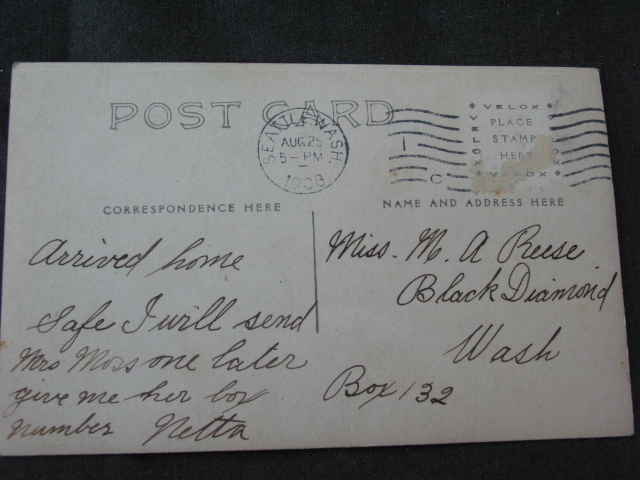 POST CARD
SEATTLE, WASH.
AUG 25
5-PM
1908
1
C
VELOX
VELOX
PLACE
STAMP
HERE
VELOX
CORRESPONDENCE HERE
NAME AND ADDRESS HERE
Arrived home
Safe I will send
Mrs Moss one later
give me her box
number Netta
Miss. M. A Reese
Black Diamond
Wash
Box 132